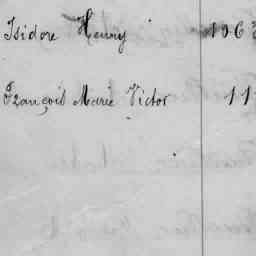 Isidore Henry 1063
François Marie Victor 11